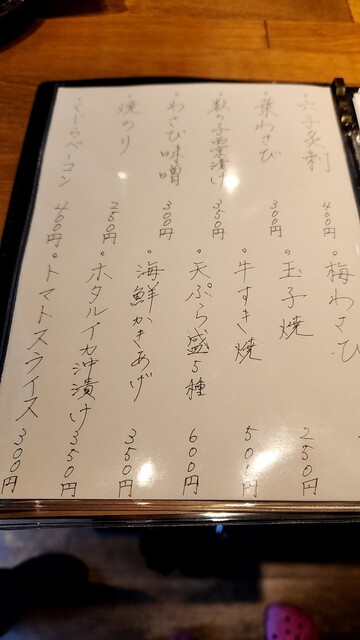 ・穴子炙刺 400円
・葉わさび 300円
・数の子粟漬け 350円
・わさび味噌 300円
・焼のり 250円
・くじらベーコン 400円
・梅わさび
・玉子焼 250円
・牛すき焼 500円
・天ぷら盛5種 600円
・海鮮かきあげ 350円
・ホタルイカ沖漬け 350円
・トマトスライス 300円